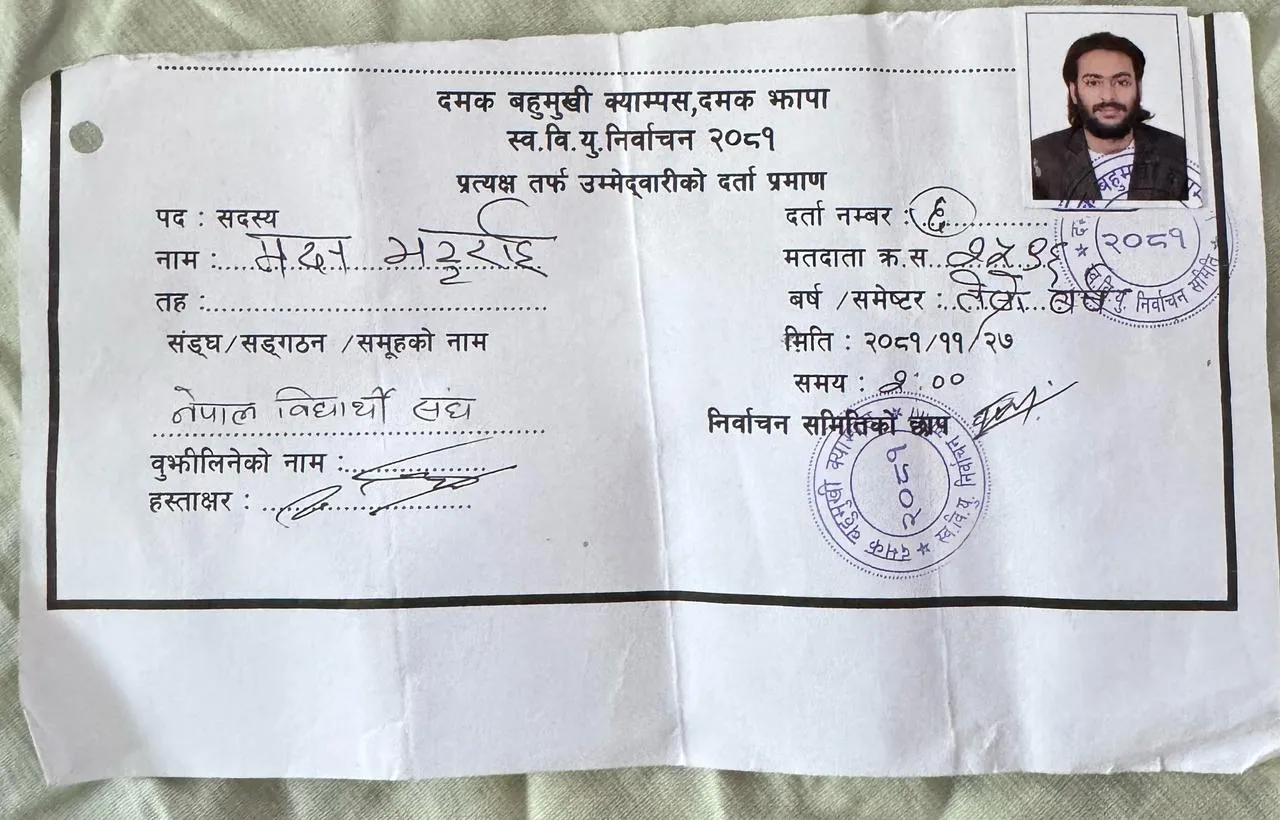 दमक बहुमुखी क्याम्पस,दमक झापा
स्व.वि.यु.निर्वाचन २०८१
प्रत्यक्ष तर्फ उम्मेद्वारीको दर्ता प्रमाण
पद : सदस्य
नाम : भट्टराई
तह :
संङ्घ/सङ्गठन /समूहको नाम
नेपाल विद्यार्थी संघ
वुझीलिनेको नाम :
हस्ताक्षर :
दर्ता नम्बर : ६
मतदाता क्र.स.
बर्ष /समेष्टर :
मिति : २०८१/११/२७
समय : :००
निर्वाचन समितिको छाप
२०८१
स्व.वि.यु. निर्वाचन समिति
दमक बहुमुखी क्या
२०८१
स्व.वि.यु. निर्वाचन